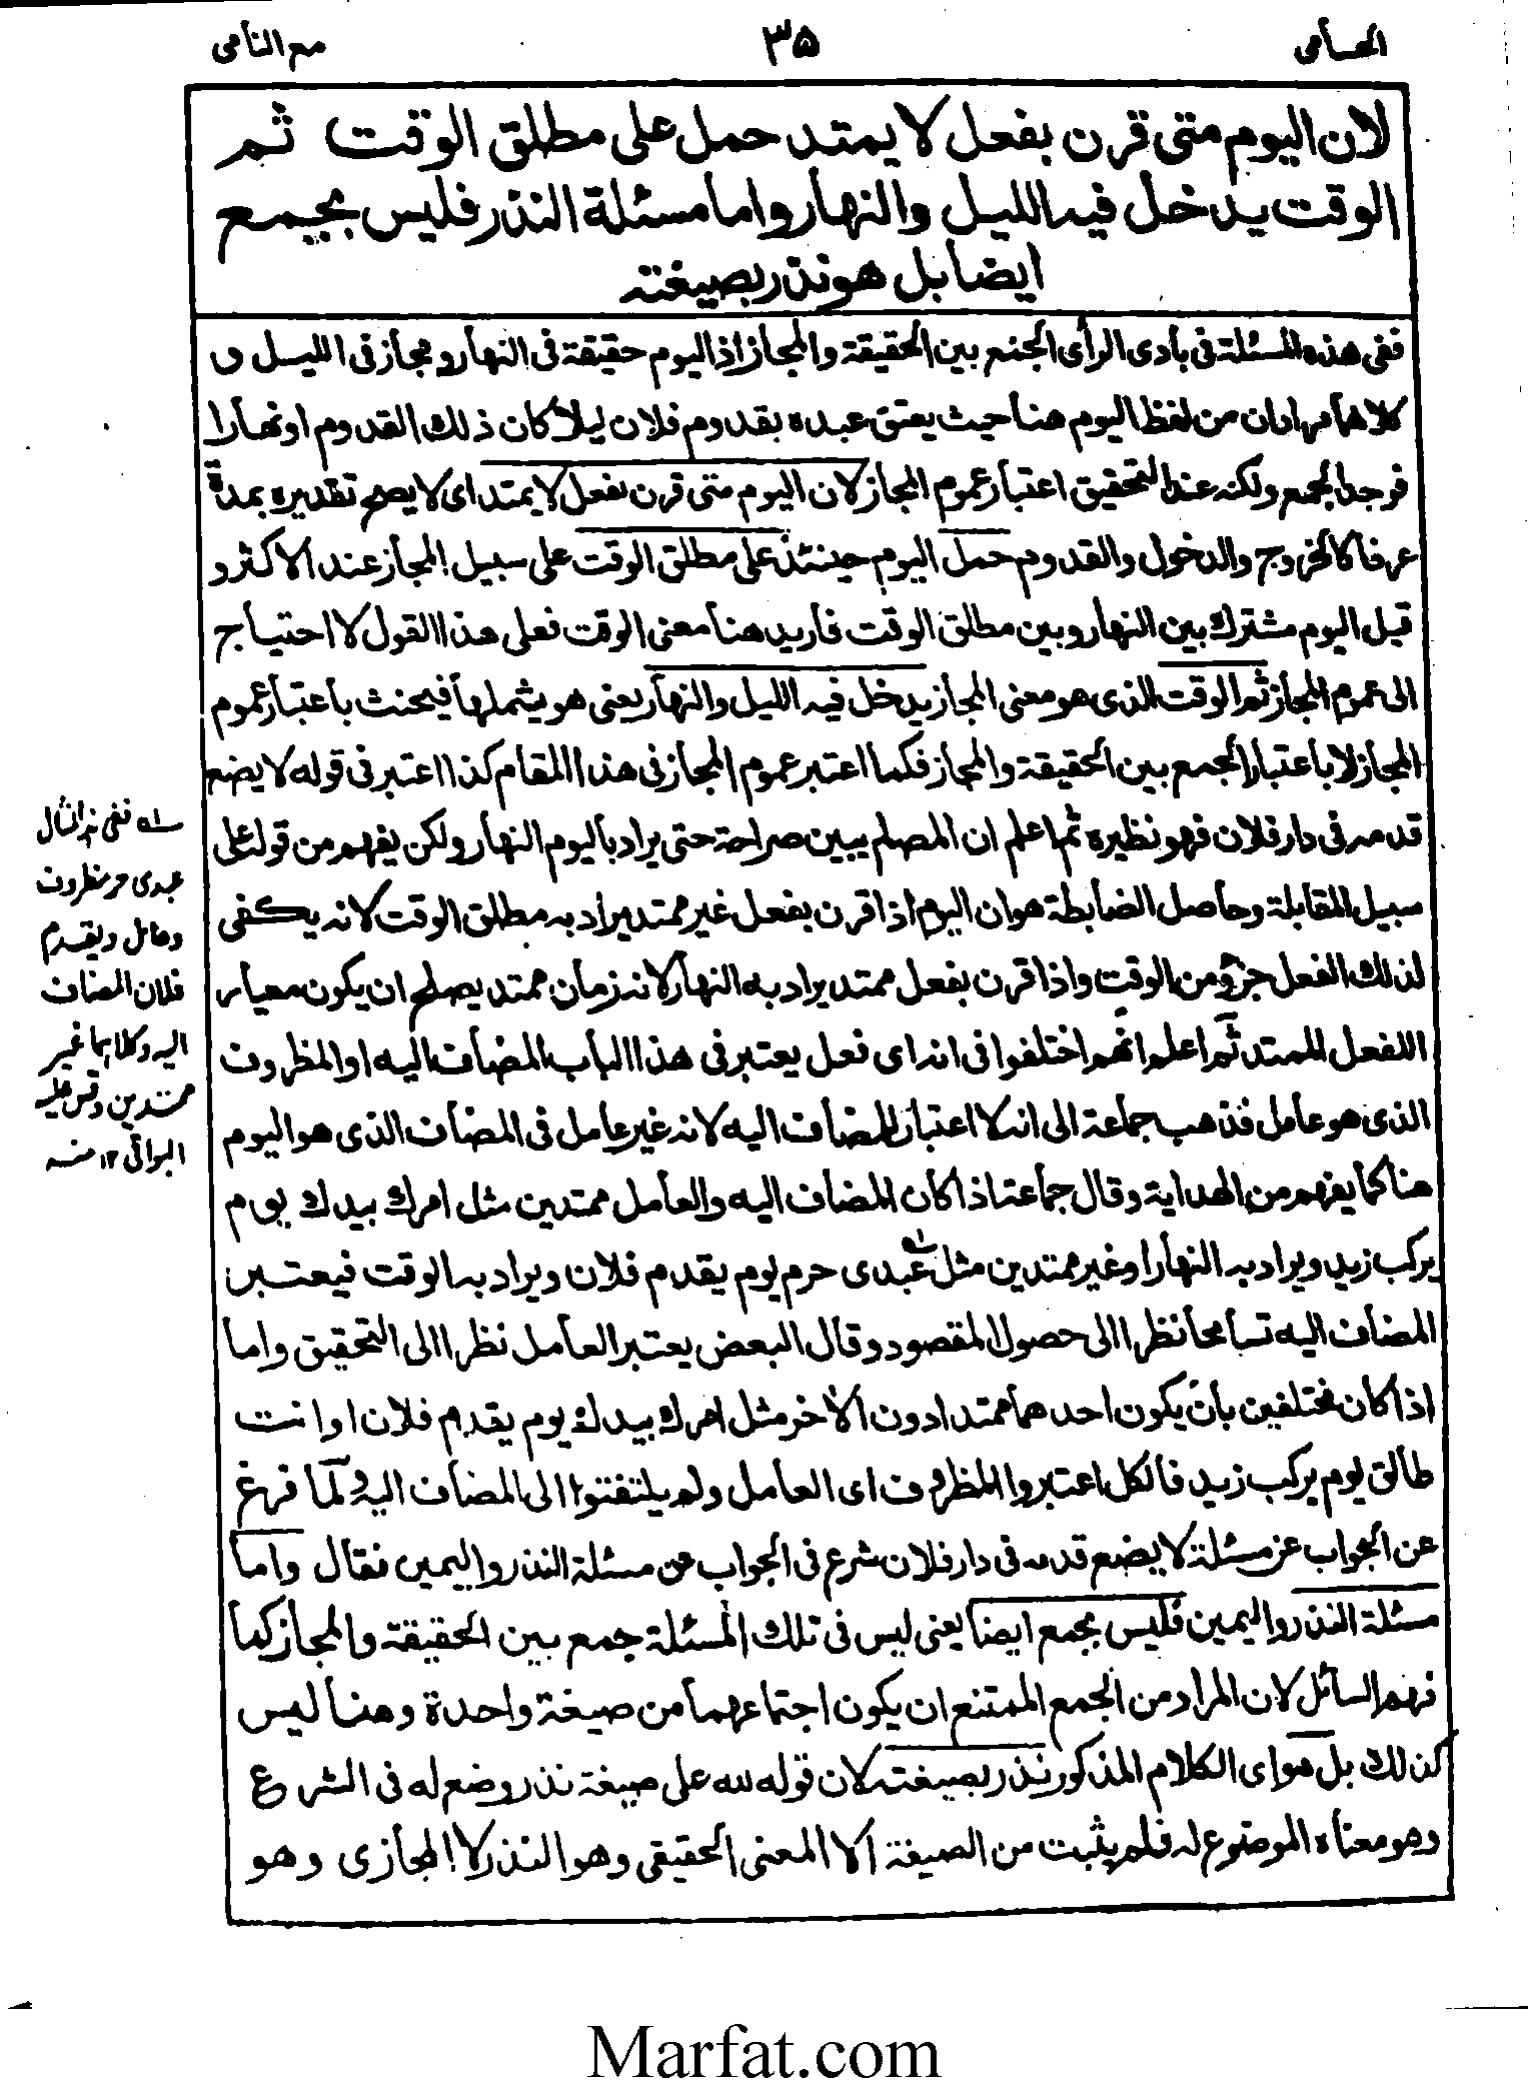 الحسامى
٣٥
مع النامى
لان اليوم متى قرن بفعل لا يمتد حمل على مطلق الوقت ثم
الوقت يدخل فيه الليل والنهار واما مسئلة النذر فليس بجمع
ايضا بل هو نذر بصيغته
ففى هذه المسئلة فى بادى الرأى الجمع بين الحقيقة والمجاز اذ اليوم حقيقة فى النهار و مجاز فى الليل و
كلاهما مرادان من لفظ اليوم هنا حيث يعتق عبده بقدوم فلان ليلا كان ذلك القدوم او نهارا
فوجد الجمع ولكنه عند التحقيق اعتبار عموم المجاز لان اليوم متى قرن بفعل لا يمتد اى لا يصح تقديره بمدة
عرفا كالخروج والدخول والقدوم حمل اليوم حينئذ على مطلق الوقت على سبيل المجاز عند الاكثر و
قيل اليوم مشترك بين النهار وبين مطلق الوقت فاريد هنا معنى الوقت فعلى هذا القول لا احتياج
الى عموم المجاز ثم الوقت الذى هو معنى المجاز يدخل فيه الليل والنهار يعنى هو يشملها فيحنث باعتبار عموم
المجاز لا باعتبار الجمع بين الحقيقة والمجاز فكما اعتبر عموم المجاز فى هذا المقام كذا اعتبر فى قوله لا يضع
قدمه فى دار فلان فهو نظيره ثم اعلم ان المصلم يبين صراحة حتى يراد باليوم النهار ولكن يفهم من قوله على
سبيل المقابلة وحاصل الضابطة هو ان اليوم اذا قرن بفعل غير ممتد يراد به مطلق الوقت لانه يكفى
لذلك الفعل جزؤ من الوقت واذا قرن بفعل ممتد يراد به النهار لانه زمان ممتد يصلح ان يكون معيار
اللفعل الممتد ثم اعلم انهم اختلفوا فى انه اى فعل يعتبر فى هذا الباب المضاف اليه او المظروف
الذى هو عامل فذهب جماعة الى انه لا اعتبار للمضاف اليه لانه غير عامل فى المضاف الذى هو اليوم
هنا كما يفهم من الهداية وقال جماعة اذا كان المضاف اليه والعامل ممتدين مثل امرك بيدك يوم
يركب زيد ويراد به النهار او غير ممتدين مثل عبدى حرم يوم يقدم فلان ويراد به الوقت فيعتبر
المضاف اليه تسامحا نظرا الى حصول المقصود وقال البعض يعتبر العامل نظرا الى التحقيق واما
اذا كان مختلفين بان يكون احدهما ممتدا دون الاخر مثل امرك بيدك يوم يقدم فلان او انت
طالق يوم يركب زيد فالكل اعتبروا المظروف اى العامل ولم يلتفتوا الى المضاف اليه ولما فرغ
عن الجواب عن مسئلة لا يضع قدمه فى دار فلان شرع فى الجواب عن مسئلة النذر واليمين فقال واما
مسئلة النذر واليمين فليس بجمع ايضا يعنى ليس فى تلك المسئلة جمع بين الحقيقة والمجاز كما
فهم السائل لان المراد من الجمع الممتنع ان يكون اجتماعهما من صيغة واحدة وهنا ليس
كذلك بل هو اى الكلام المذكور نذر بصيغته لان قوله لله على صيغة نذر وضع له فى الشرع
وهو معناه الموضوع له فلم يثبت من الصيغة الا المعنى الحقيقى وهو النذر لا المجازى وهو
ـله ففى هذا المثال
عبدى حر مظروف
وعامل ويقدم
فلان المضاف
اليه وكلاهما غير
ممتدين وقس عليه
البواقى ١٢ منه
Marfat.com